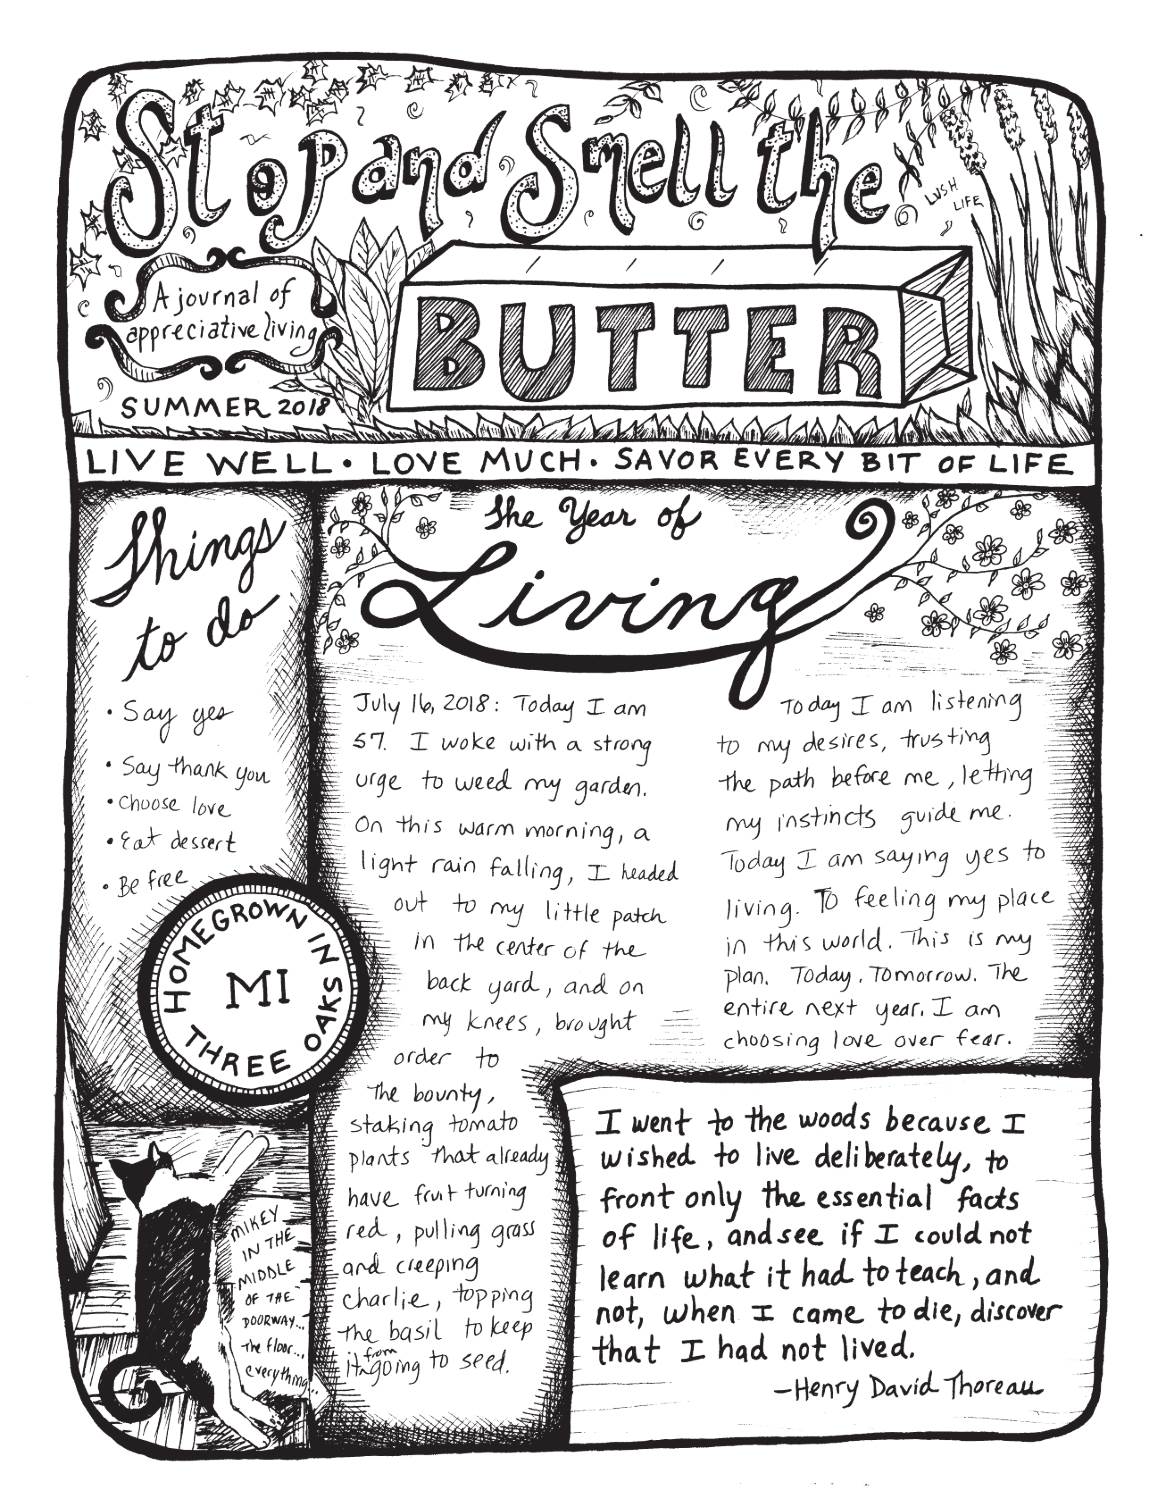 Stop and Smell the
BUTTER
LUSH
LIFE
A journal of
appreciative living
SUMMER 2018
LIVE WELL • LOVE MUCH • SAVOR EVERY BIT OF LIFE
Things
to do
• Say yes
• Say thank you
• Choose love
• Eat dessert
• Be free
HOMEGROWN IN
THREE OAKS
MI
MIKEY
IN THE
MIDDLE
OF THE
DOORWAY...
the floor...
everything...
The Year of
Living
July 16, 2018: Today I am
57. I woke with a strong
urge to weed my garden.
On this warm morning, a
light rain falling, I headed
out to my little patch
in the center of the
back yard, and on
my knees, brought
order to
the bounty,
staking tomato
plants that already
have fruit turning
red, pulling grass
and creeping
charlie, topping
the basil to keep
it from going to seed.
Today I am listening
to my desires, trusting
the path before me, letting
my instincts guide me.
Today I am saying yes to
living. To feeling my place
in this world. This is my
plan. Today. Tomorrow. The
entire next year. I am
choosing love over fear.
I went to the woods because I
wished to live deliberately, to
front only the essential facts
of life, and see if I could not
learn what it had to teach, and
not, when I came to die, discover
that I had not lived.
—Henry David Thoreau